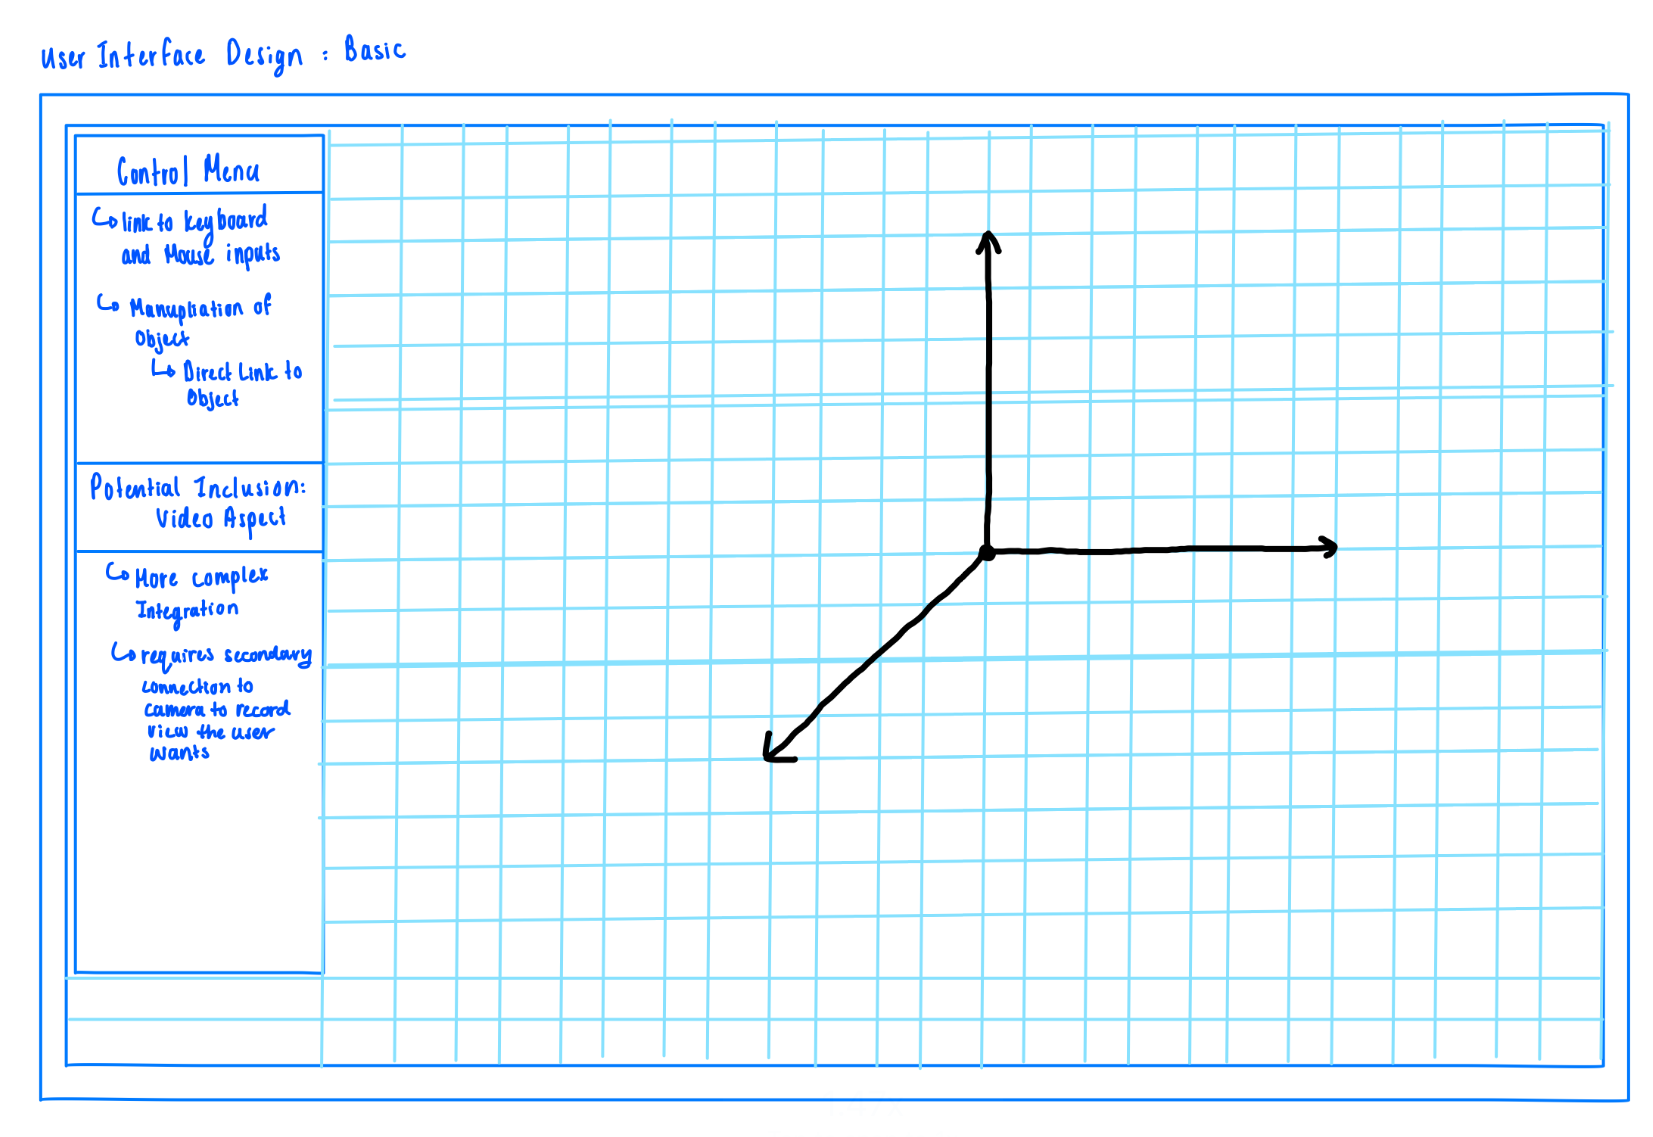 User Interface Design : Basic
Control Menu
link to keyboard
and Mouse inputs
Manupliation of
Object
Direct Link to
Object
Potential Inclusion:
Video Aspect
More complex
Integration
requires secondary
connection to
camera to record
view the user
wants